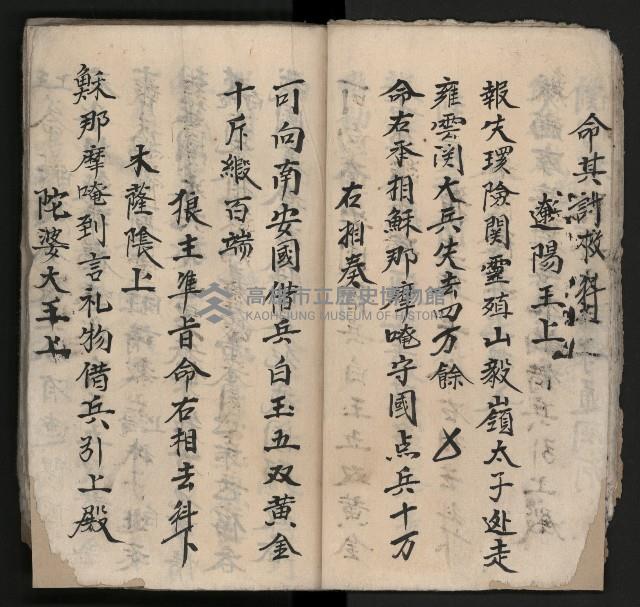 命其計救將
遼陽王上
報失環險関靈殞山毅嶺太子逃走
雍雲関大兵失去四万餘
命右丞相穌那摩唵守國点兵十万
右相奏
可向南安國借兵白玉五双黄金
十斥緞百端
狼主準旨命右相去科下
木薩隂上
穌那摩唵到言礼物借兵引上殿
陀婆大王上
高雄市立歷史博物館
KAOHSIUNG MUSEUM OF HISTORY